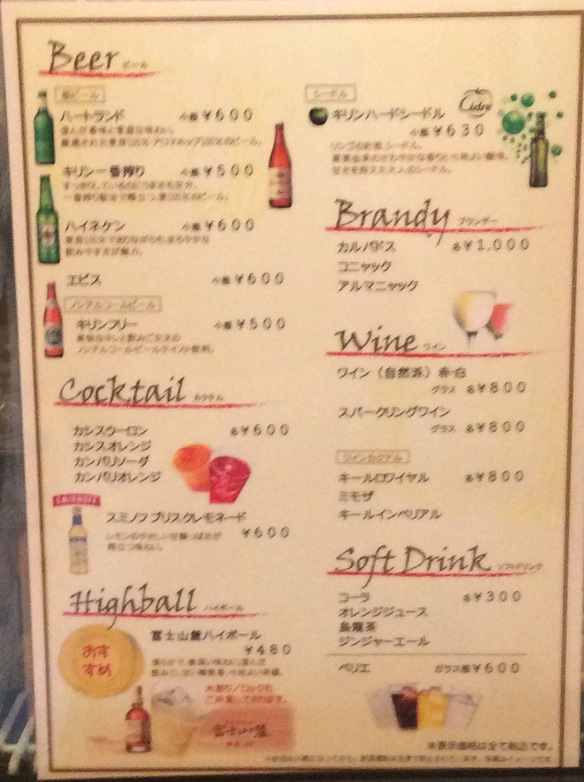 Beer ビール
瓶ビール
ハートランド 小瓶 ¥600
キリン一番搾り 小瓶 ¥500
ハイネケン 小瓶 ¥600
エビス 小瓶 ¥600
ノンアルコールビール
キリンフリー 小瓶 ¥500
ノンアルコールビールテイスト飲料。
Cocktail カクテル
カシスウーロン 各¥600
カシスオレンジ
カンパリソーダ
カンパリオレンジ
SMIRNOFF
スミノフ ブリスクレモネード
¥600
Highball ハイボール
おす
すめ
富士山麓ハイボール
¥480
水割り/ロックも
ご用意しております。
富士山麓
シードル
キリンハードシードル
Cidre
小瓶 ¥630
Brandy ブランデー
カルバドス 各¥1,000
コニャック
アルマニャック
Wine ワイン
ワイン(自然派)赤・白
グラス 各¥800
スパークリングワイン
グラス 各¥800
ワインカクテル
キールロワイヤル 各¥800
ミモザ
キールインペリアル
Soft Drink ソフトドリンク
コーラ 各¥300
オレンジジュース
烏龍茶
ジンジャーエール
ペリエ ガラス瓶 ¥600
※表示価格は全て税込です。